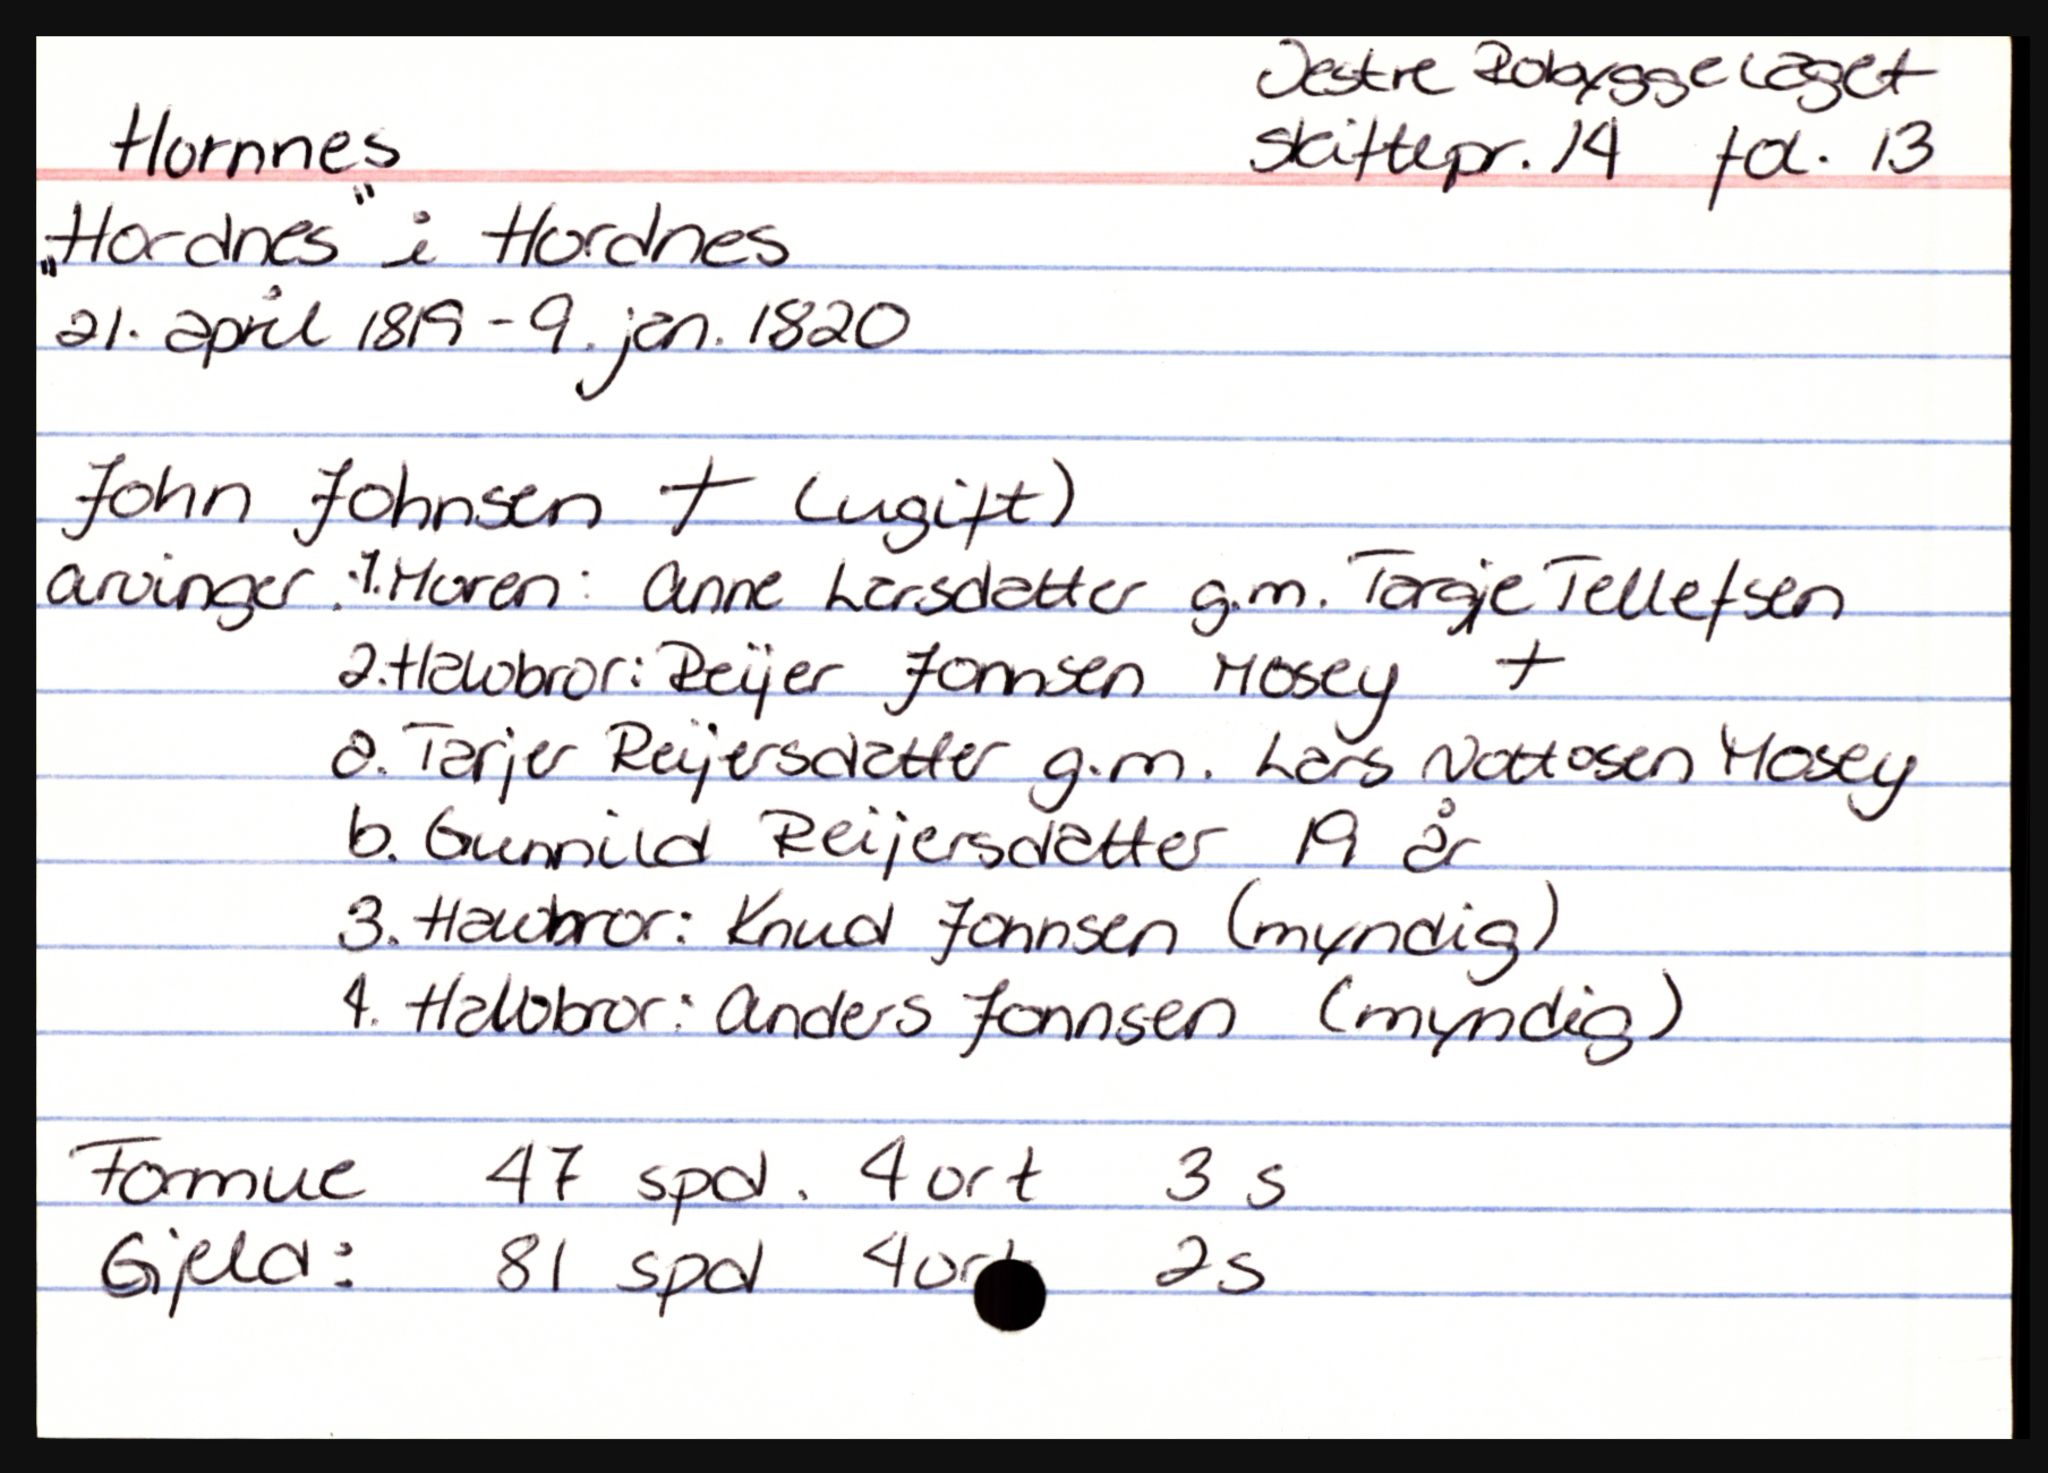 Vestre Robyggelaget
Hornnes skiftepr. 14 fol. 13
"Hordnes" i Hordnes
21. april 1819 - 9. jan. 1820
John Johnsen + (ugift)
arvinger: 1. Moren: Anne Larsdatter g.m. Targje Tellefsen
2. Halvbror: Reijer Johnsen Mosey +
a. Tarjer Reijersdatter g.m. Lars Nottosen Mosey
b. Gunnild Reijersdatter 19 år
3. Halvbror: Knud Johnsen (myndig)
4. Halvbror: Anders Johnsen (myndig)
Formue 47 spd. 4 ort 3 s
Gjeld: 81 spd 4 ort 2 s